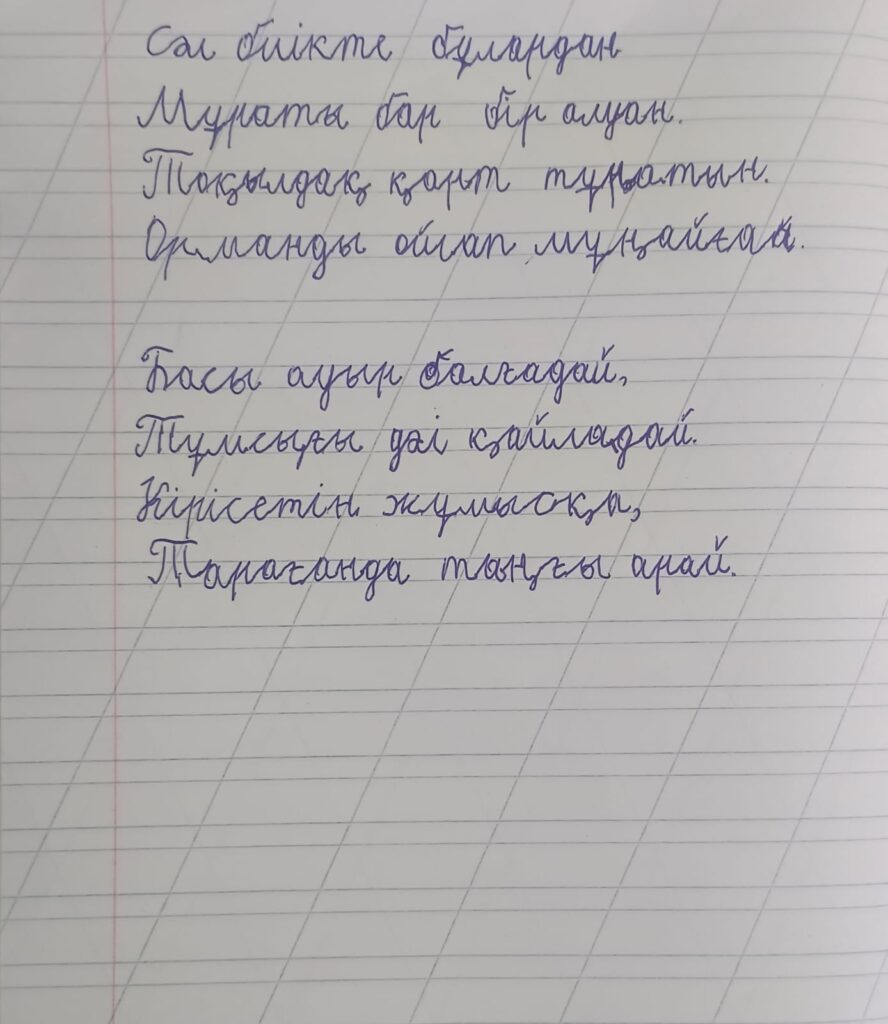 Сәл биікте бұлардан
Мұраты бар бір алуан.
Тоқылдақ қарт тұратын.
Орманды ойлап мұңайған.
Басы ауыр балғадай,
Тұмсығы дәл қайладай.
Кірісетін жұмысқа,
Тарағанда таңғы арай.